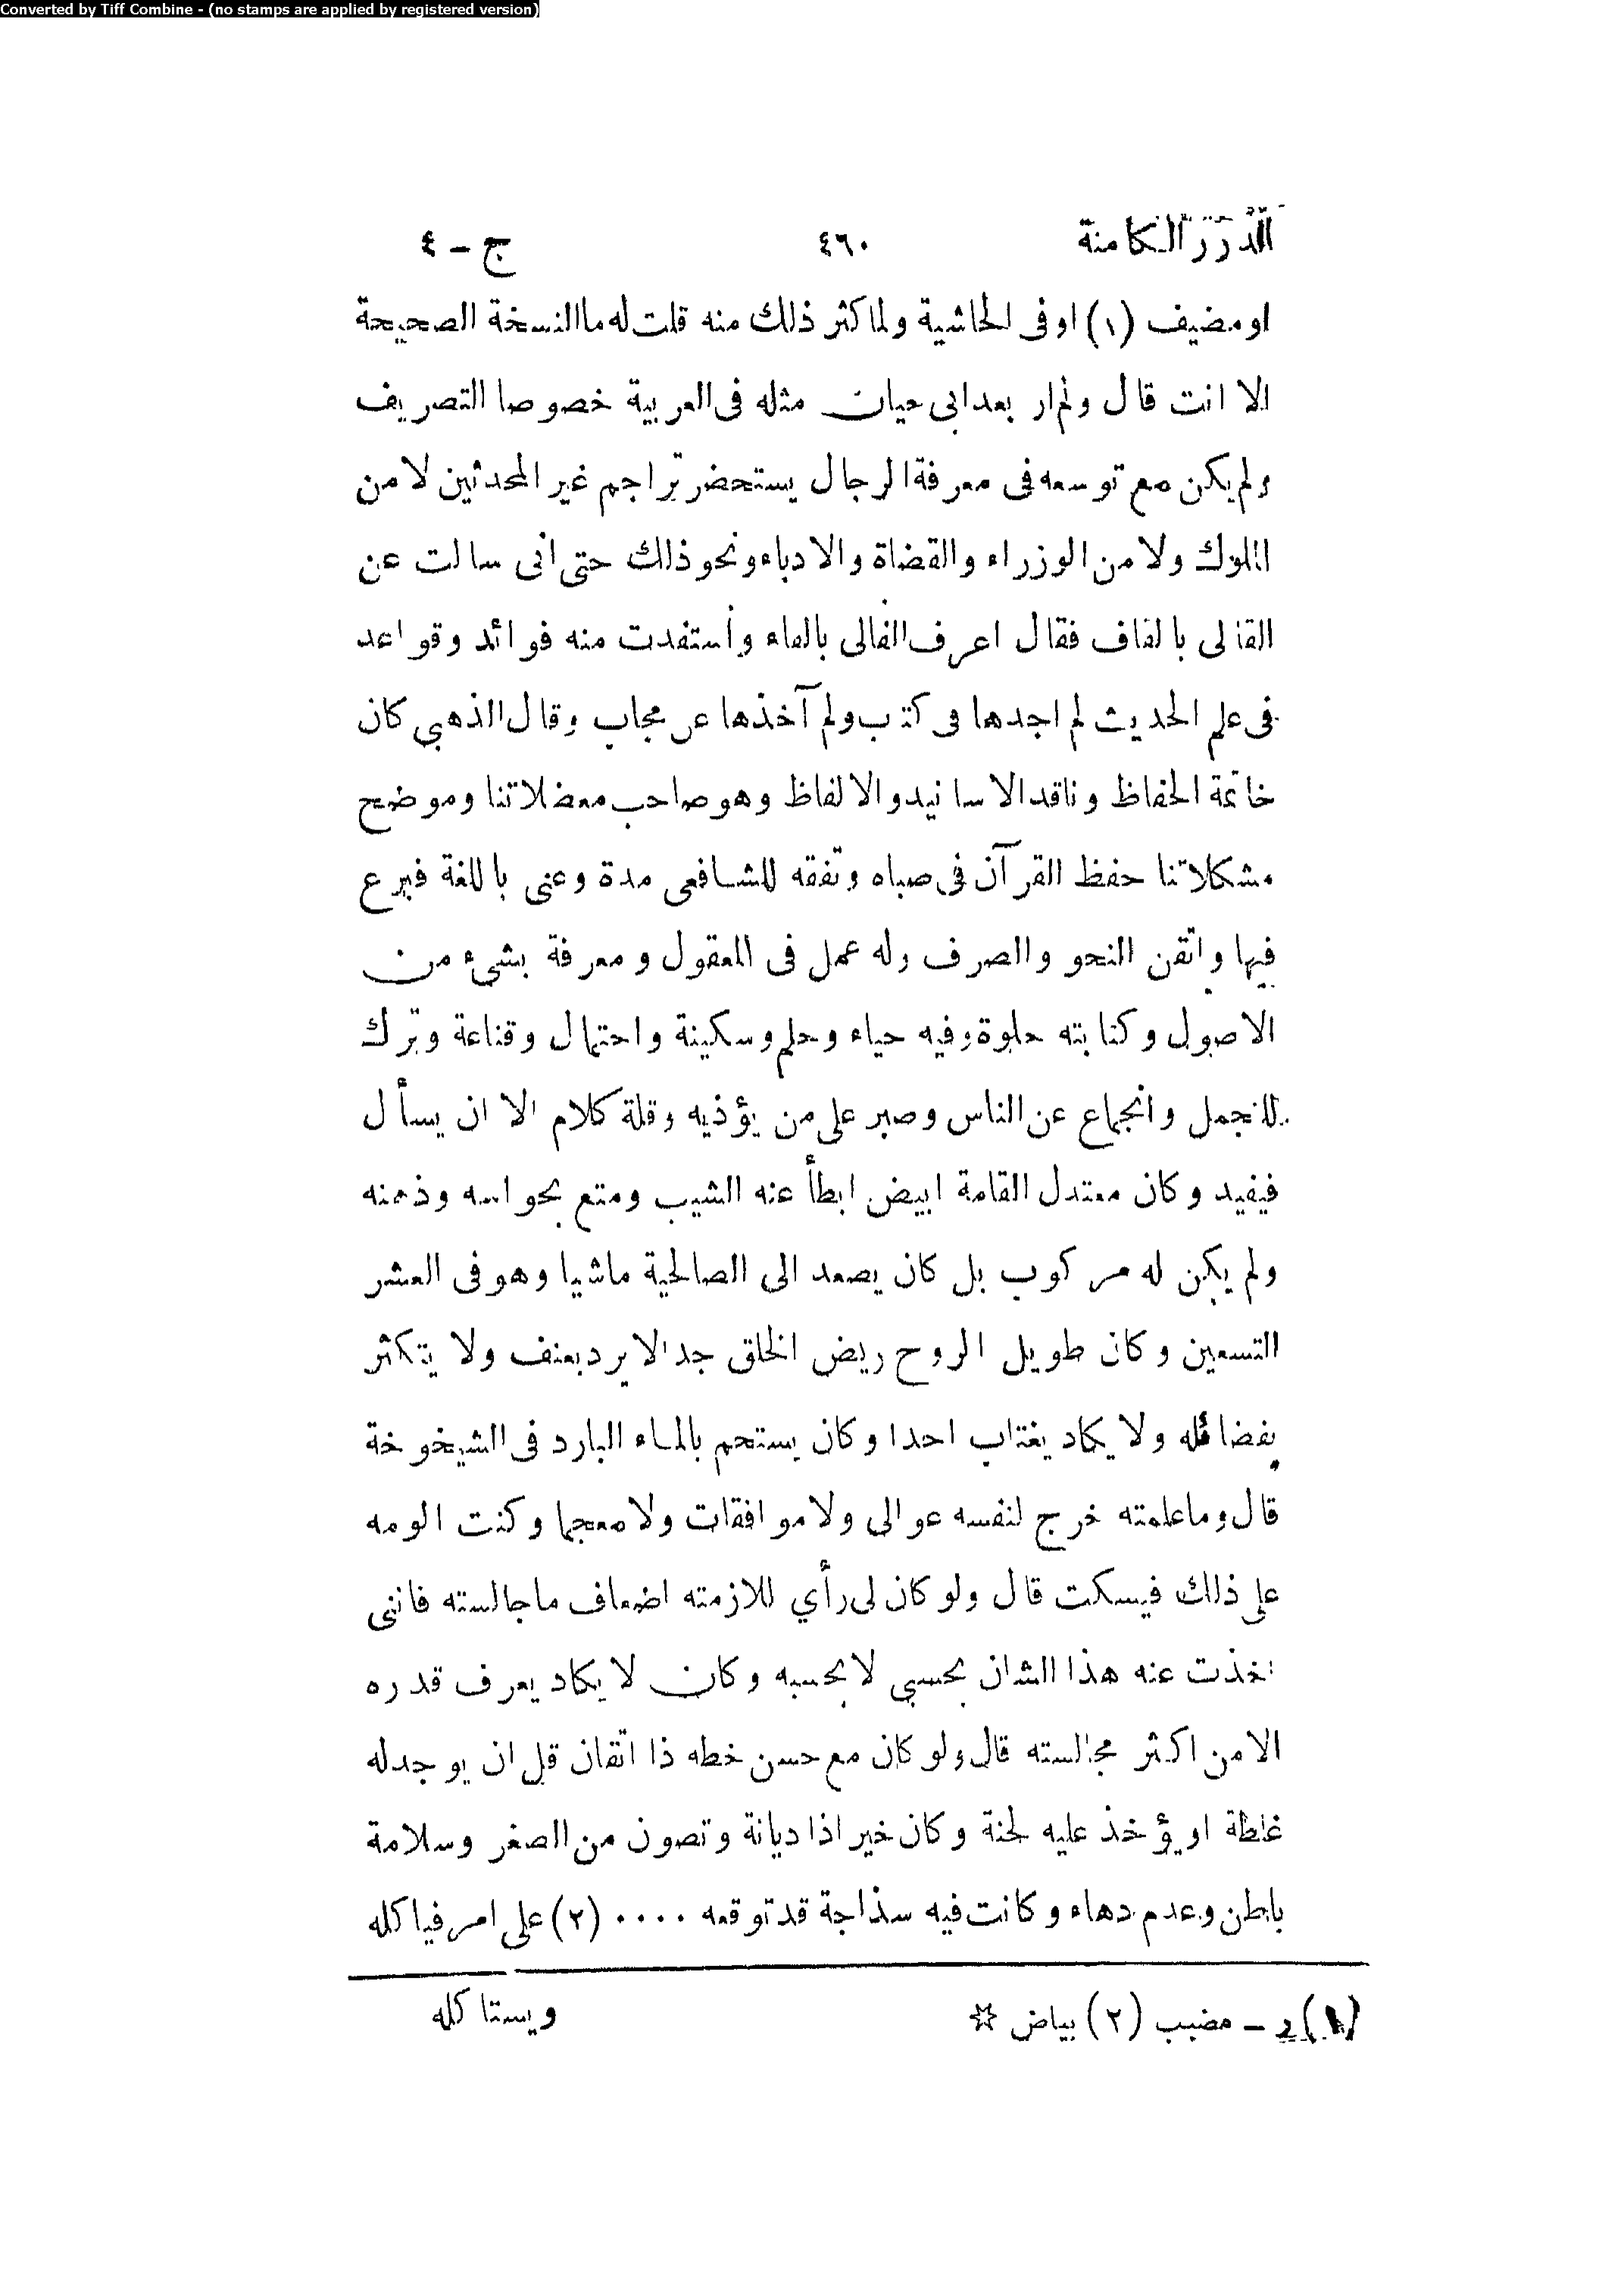 Converted by Tiff Combine - (no stamps are applied by registered version)
الدرر الكامنة ٤٦٠ ج - ٤
او مضيف (١) اوفى الحاشية ولما كثر ذلك منه قلت له ما النسخة الصحيحة
الا انت قال ولم ار بعد ابى حيان مثله فى العربية خصوصا التصريف
ولم يكن مع توسعه فى معرفة الرجال يستحضر تراجم غير المحدثين لا من
الملوك ولا من الوزراء والقضاة والادباء ونحو ذلك حتى انى سالت عن
القالى بالقاف فقال اعرف الفالى بالفاء وأستفدت منه فوائد وقواعد
فى علم الحديث لم اجدها فى كتب ولم آخذها عن مجاب وقال الذهبي كان
خاتمة الحفاظ وناقد الاسانيد والالفاظ وهو صاحب معضلاتنا وموضح
مشكلاتنا حفظ القرآن فى صباه وتفقه للشافعى مدة وعنى باللغة فبرع
فيها واتقن النحو والصرف وله عمل فى المعقول ومعرفة بشىء من
الاصول وكتابته حلوة وفيه حياء وحلم وسكينة واحتمال وقناعة وترك
للتجمل وانجماع عن الناس وصبر على من يؤذيه وقلة كلام الا ان يسأل
فيفيد وكان معتدل القامة ابيض ابطأ عنه الشيب ومتع بحواسه وذهنه
ولم يكن له مركوب بل كان يصعد الى الصالحية ماشيا وهو فى العشر
التسعين وكان طويل الروح ريض الخلق جدا لا يرد بعنف ولا يتكثر
بفضائله ولا يكاد يغتاب احدا وكان يستحم بالماء البارد فى الشيخوخة
قال وما علمته خرج لنفسه عوالى ولا موافقات ولا معجما وكنت الومه
على ذلك فيسكت قال ولو كان لى رأي للازمته اضعاف ما جالسته فاننى
اخذت عنه هذا الشان بحسبي لا بحسبه وكان لا يكاد يعرف قدره
الا من اكثر مجالسته قال ولو كان مع حسن خطه ذا اتقان قل ان يوجد له
غلطة او يؤخذ عليه لحنة وكان خيرا ذا ديانة وتصون من الصغر وسلامة
باطن وعدم دهاء وكانت فيه سذاجة قد توقعه .... (٢) على امر فيا كله
ويستا كله
(١) ر - مضبب (٢) بياض ☆